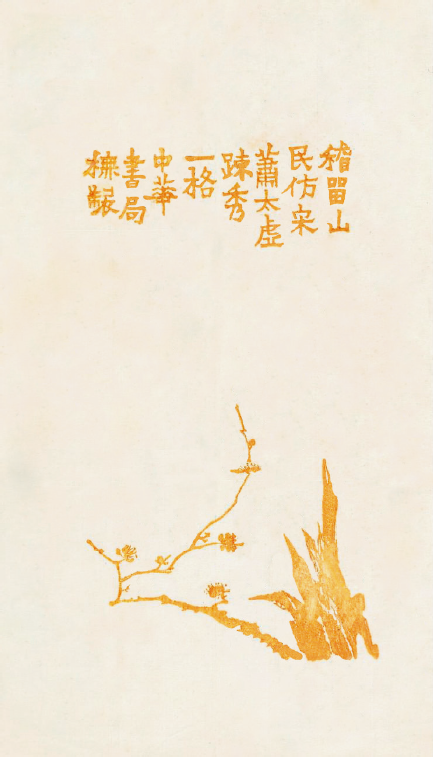 稽留山
民仿宋
蕭太虛
踈秀
一格
中華
書局
橅製